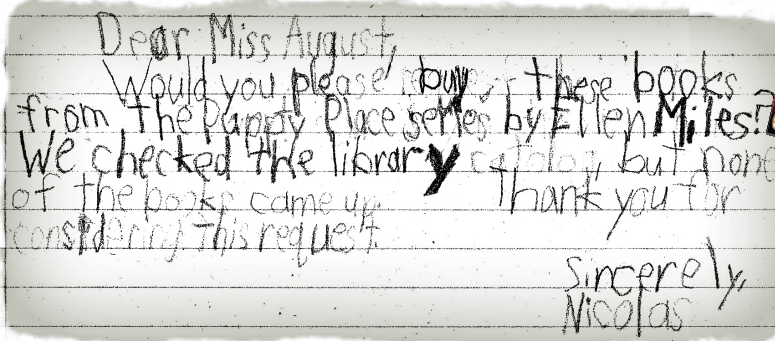 Dear Miss August,
Would you please buy these books
from the Puppy Place series by Ellen Miles?
We checked the library catolog, but none
of the books came up. Thank you for
considering this request.
Sincerely,
Nicolas